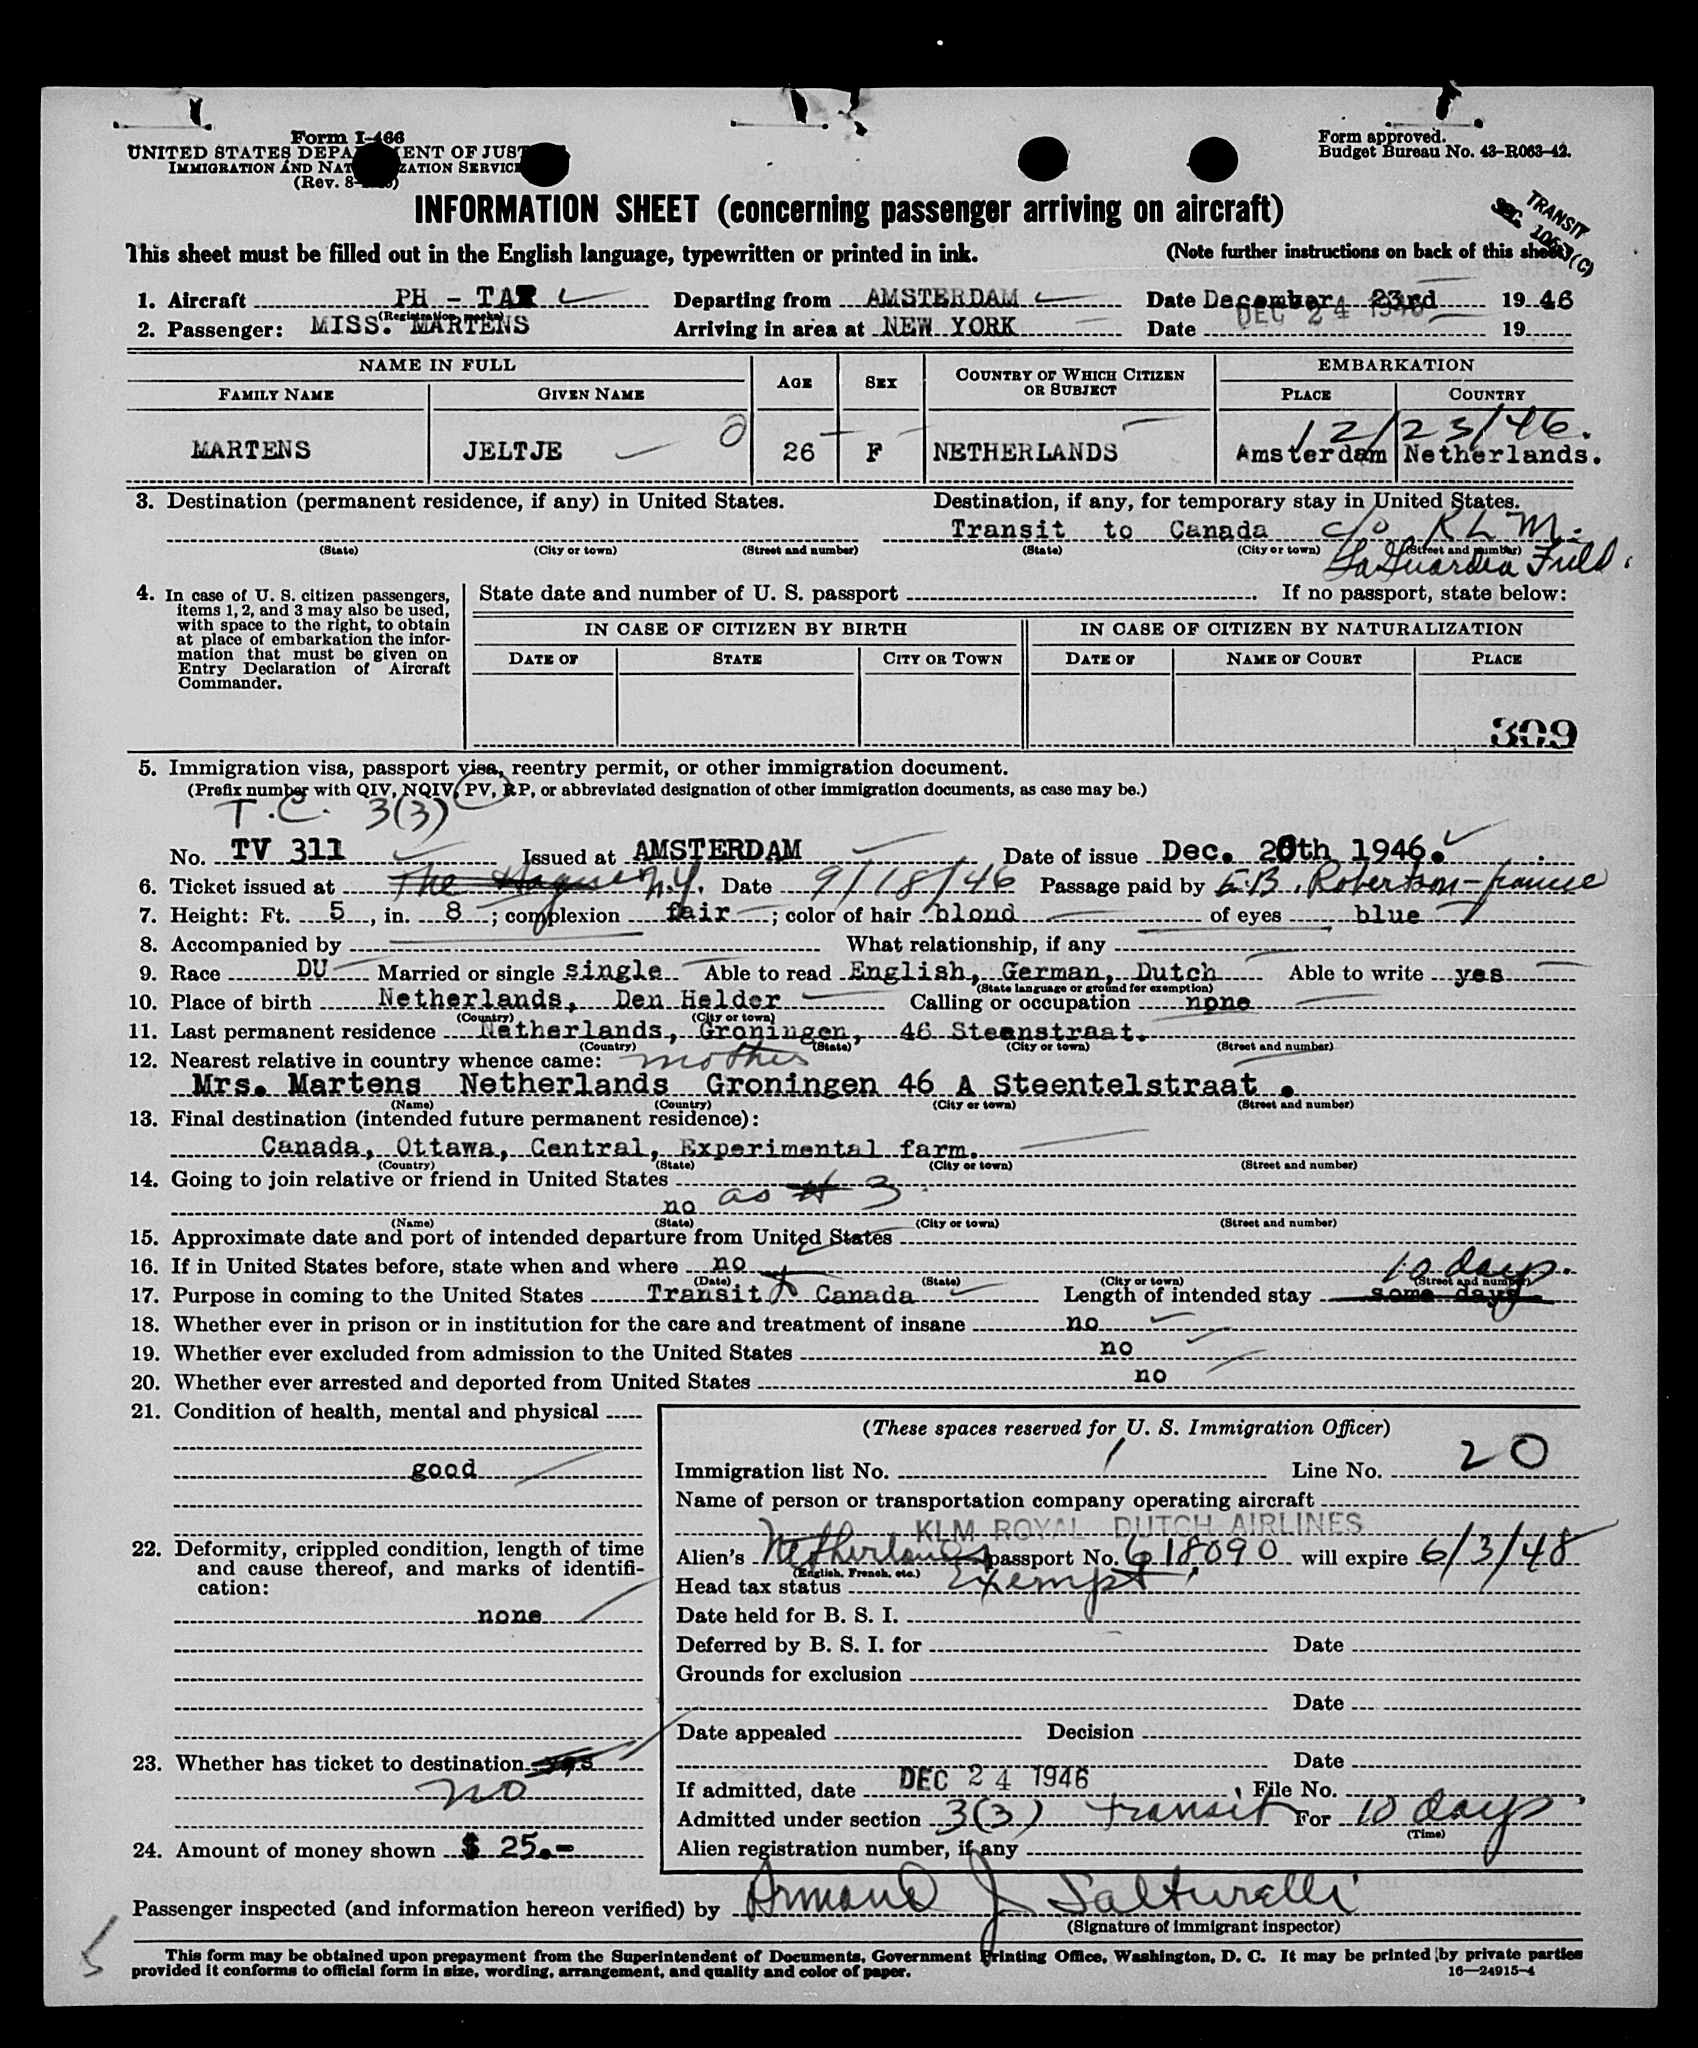 Form I-466
UNITED STATES DEPARTMENT OF JUSTICE
IMMIGRATION AND NATURALIZATION SERVICE
(Rev. 8-
Form approved.
Budget Bureau No. 43-R063-42.
INFORMATION SHEET (concerning passenger arriving on aircraft)
TRANSIT
SEC.
This sheet must be filled out in the English language, typewritten or printed in ink. (Note further instructions on back of this sheet)
1. Aircraft PH - TA Departing from AMSTERDAM Date December 23rd 1946
(Registration marks)
2. Passenger: MISS. MARTENS Arriving in area at NEW YORK Date DEC 24 1946 19
NAME IN FULL AGE SEX COUNTRY OF WHICH CITIZEN OR SUBJECT EMBARKATION
FAMILY NAME GIVEN NAME PLACE COUNTRY
12/23/46.
MARTENS JELTJE 26 F NETHERLANDS Amsterdam Netherlands.
3. Destination (permanent residence, if any) in United States. Destination, if any, for temporary stay in United States.
Transit to Canada c/o KLM.
(State) (City or town) (Street and number) (State) (City or town) (Street and number)
LaGuardia Field.
4. In case of U. S. citizen passengers, items 1, 2, and 3 may also be used, with space to the right, to obtain at place of embarkation the information that must be given on Entry Declaration of Aircraft Commander.
State date and number of U. S. passport . If no passport, state below:
IN CASE OF CITIZEN BY BIRTH IN CASE OF CITIZEN BY NATURALIZATION
DATE OF STATE CITY OR TOWN DATE OF NAME OF COURT PLACE
309
5. Immigration visa, passport visa, reentry permit, or other immigration document.
(Prefix number with QIV, NQIV, PV, RP, or abbreviated designation of other immigration documents, as case may be.)
T.C. 3(3)
No. TV 311 Issued at AMSTERDAM Date of issue Dec. 20th 1946.
6. Ticket issued at The Hague N.Y. Date 9/18/46 Passage paid by E.B. Robertson-
7. Height: Ft. 5, in. 8; complexion fair; color of hair blond of eyes blue
8. Accompanied by What relationship, if any
9. Race DU Married or single single Able to read English, German, Dutch Able to write yes
(State language or ground for exemption)
10. Place of birth Netherlands, Den Helder Calling or occupation none
(Country) (City or town)
11. Last permanent residence Netherlands, Groningen, 46 Steenstraat.
(Country) (State) (City or town) (Street and number)
12. Nearest relative in country whence came: mother
Mrs. Martens Netherlands Groningen 46 A Steentelstraat.
(Name) (Country) (City or town) (Street and number)
13. Final destination (intended future permanent residence):
Canada, Ottawa, Central, Experimental farm.
(Country) (State) (City or town) (Street and number)
14. Going to join relative or friend in United States
no as # 3
(Name) (State) (City or town) (Street and number)
15. Approximate date and port of intended departure from United States
16. If in United States before, state when and where no
(Date) (State) (City or town) (Street and number)
10 days.
17. Purpose in coming to the United States Transit Canada Length of intended stay some days.
18. Whether ever in prison or in institution for the care and treatment of insane no
19. Whether ever excluded from admission to the United States no
20. Whether ever arrested and deported from United States no
21. Condition of health, mental and physical
good
22. Deformity, crippled condition, length of time and cause thereof, and marks of identification:
none
23. Whether has ticket to destination yes
no
24. Amount of money shown $ 25.-
(These spaces reserved for U. S. Immigration Officer)
Immigration list No. 1 Line No. 20
Name of person or transportation company operating aircraft
KLM ROYAL DUTCH AIRLINES
Alien's Netherlands passport No. 618090 will expire 6/3/48
(English, French, etc.)
Head tax status Exempt
Date held for B. S. I.
Deferred by B. S. I. for Date
Grounds for exclusion
Date
Date appealed Decision
Date
If admitted, date DEC 24 1946 File No.
Admitted under section 3(3) transit For 10 days
(Time)
Alien registration number, if any
Passenger inspected (and information hereon verified) by Armand J Salturelli
(Signature of immigrant inspector)
This form may be obtained upon prepayment from the Superintendent of Documents, Government Printing Office, Washington, D. C. It may be printed by private parties
provided it conforms to official form in size, wording, arrangement, and quality and color of paper. 16—24915-4